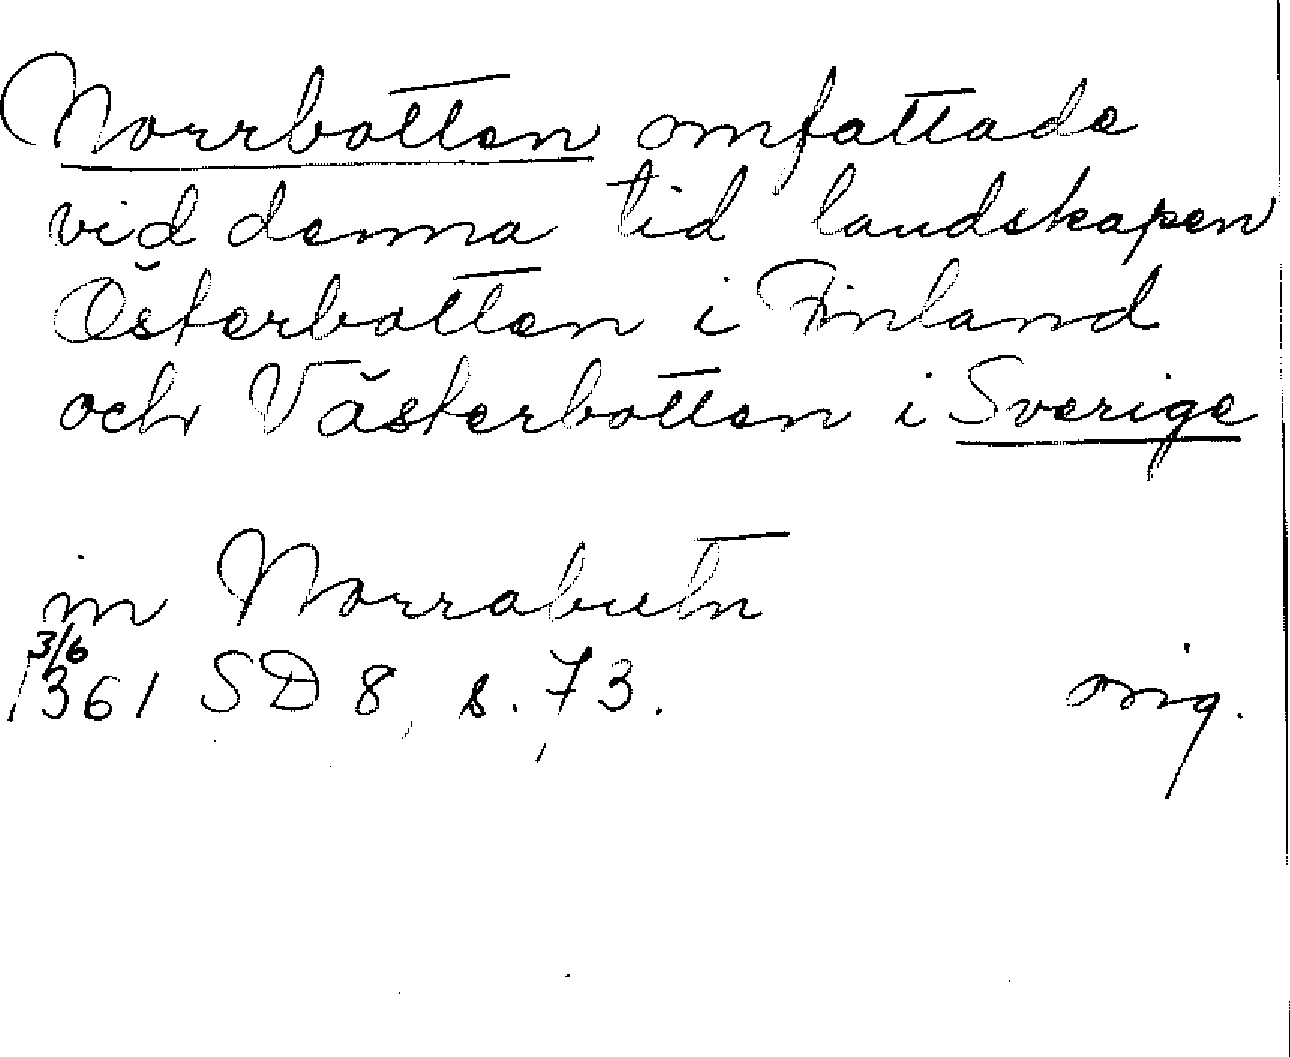 Norrbotten omfattade
vid denna tid landskapen
Österbotten i Finland
och Västerbotten i Sverige
in Norrabutn
3/6
1361 SD 8, s. 73.
orig.